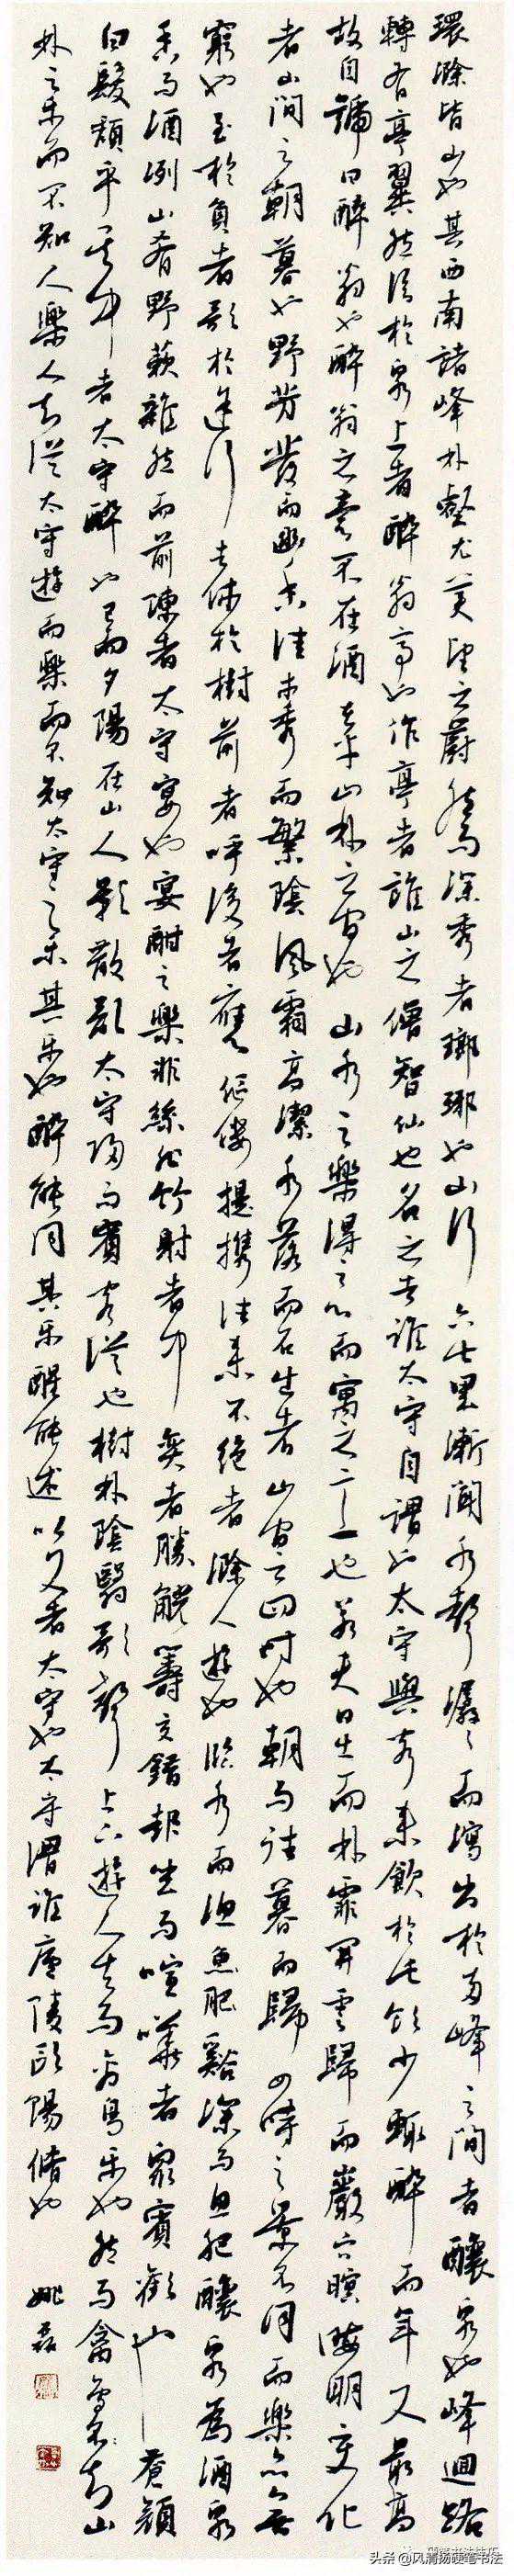 環滁皆山也其西南諸峰林壑尤美望之蔚然而深秀者瑯琊也山行六七里漸聞水聲潺潺而瀉出於兩峰之間者釀泉也峰迴路
轉有亭翼然臨於泉上者醉翁亭也作亭者誰山之僧智仙也名之者誰太守自謂也太守與客來飲於此飲少輒醉而年又最高
故自號曰醉翁也醉翁之意不在酒在乎山林之間也山水之樂得之心而寓之也若夫日出而林霏開雲歸而巖穴暝晦明變化
者山間之朝暮也野芳發而幽香佳木秀而繁陰風霜高潔水落而石出者山間之四時也朝而往暮而歸四時之景不同而樂亦無
窮也至於負者歌於途行者休於樹前者呼後者應傴僂提攜往來不絕者滁人遊也臨水而漁魚肥谿深而魚肥釀泉為酒泉
香而酒洌山肴野蔌雜然而前陳者太守宴也宴酣之樂非絲非竹射者中奕者勝觥籌交錯起坐而喧嘩者眾賓歡也蒼顏
白髮頹乎其中者太守醉也已而夕陽在山人影散亂太守歸而賓客從也樹林陰翳聲上下遊人去而禽鳥樂也然而禽鳥知山
林之樂而不知人樂人知從太守遊而樂而不知太守之樂其樂也醉能同其樂醒能述以文者太守也太守謂誰廬陵歐陽脩也 姚
头条 @风清扬硬笔书法